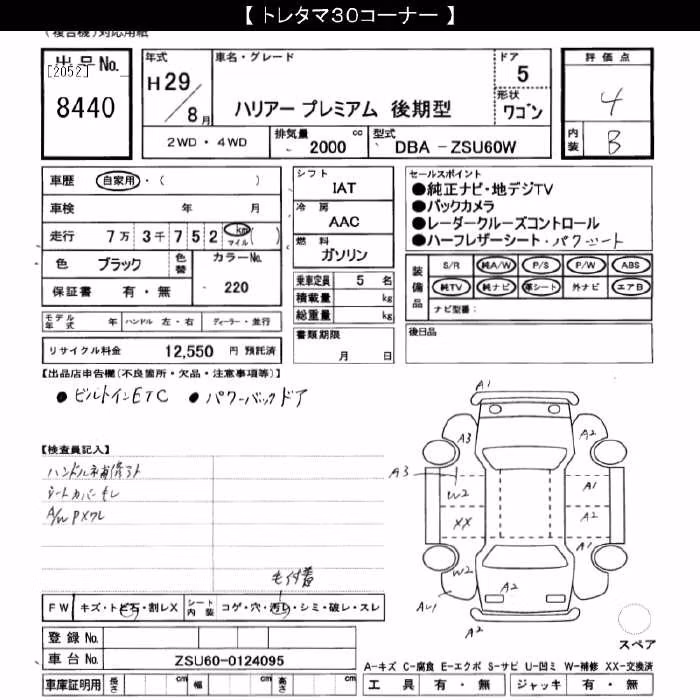 【 トレタマ30コーナー 】
(複合機)対応用紙
出品No.
[2052]
8440
年式
H29/8月
車名・グレード
ハリアー プレミアム 後期型
ドア
5
形状
ワゴン
評価点
4
内装
B
2WD・4WD
排気量
2000 cc
型式
DBA - ZSU60W
車歴 自家用・( )
車検 年 月
走行 7万 3千 7 5 2 km マイル ( )
色 ブラック 色替 カラーNo.
保証書 有・無 220
モデル年式 年 ハンドル 左・右 ディーラー・並行
リサイクル料金 12,550 円 預託済
シフト
IAT
冷房
AAC
燃料
ガソリン
乗車定員 5 名
積載量 kg
総重量 kg
書類期限
月 日
セールスポイント
●純正ナビ・地デジTV
●バックカメラ
●レーダークルーズコントロール
●ハーフレザーシート・パワーシート
装備品
S/R 純A/W P/S P/W ABS
純TV 純ナビ 革シート 外ナビ エアB
ナビ型番:
後日品
【出品店申告欄(不良箇所・欠品・注意事項等)】
● ビルトインETC ● パワーバックドア
【検査員記入】
シートカバー
A/W
毛付着
FW キズ・トビ石・割レX シート内装 コゲ・穴・汚レ・シミ・破レ・スレ
登録No.
車台No. ZSU60-0124095
車庫証明用 長さ cm 幅 cm 高さ cm
A1
A3
A2
A3
W2
A1
XX
A2
W2
A2
A2
A2
スペア
A-キズ C-腐食 E-エクボ S-サビ U-凹ミ W-補修 XX-交換済
工具 有・無 ジャッキ 有・無